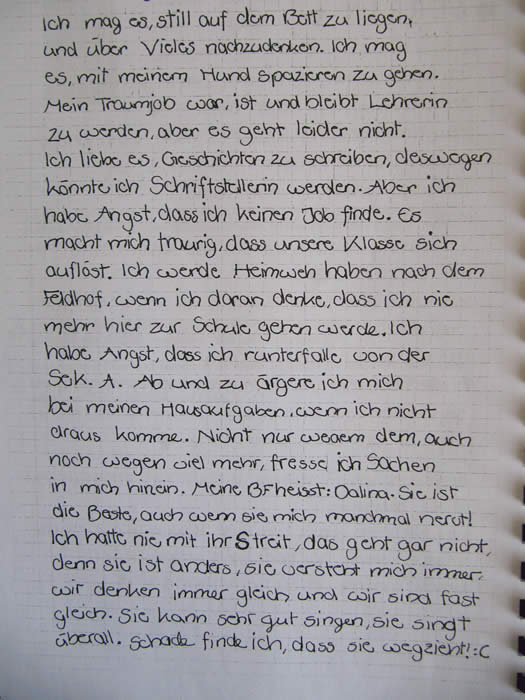 Ich mag es, still auf dem Bett zu liegen,
und über Vieles nachzudenken. Ich mag
es, mit meinem Hund spazieren zu gehen.
Mein Traumjob war, ist und bleibt Lehrerin
zu werden, aber es geht leider nicht.
Ich liebe es, Geschichten zu schreiben, deswegen
könnte ich Schriftstellerin werden. Aber ich
habe Angst, dass ich keinen Job finde. Es
macht mich traurig, dass unsere Klasse sich
auflöst. Ich werde Heimweh haben nach dem
Feldhof, wenn ich daran denke, dass ich nie
mehr hier zur Schule gehen werde. Ich
habe Angst, dass ich runterfalle von der
Sek. A. Ab und zu ärgere ich mich
bei meinen Hausaufgaben, wenn ich nicht
draus komme. Nicht nur wegem dem, auch
noch wegen viel mehr, fresse ich Sachen
in mich hinein. Meine BF heisst: Dalina. Sie ist
die Beste, auch wenn sie mich manchmal nervt!
Ich hatte nie mit ihr Streit, das geht gar nicht,
denn sie ist anders, sie versteht mich immer.
wir denken immer gleich und wir sind fast
gleich. Sie kann sehr gut singen, sie singt
überall. Schade finde ich, dass sie wegzieht! :C